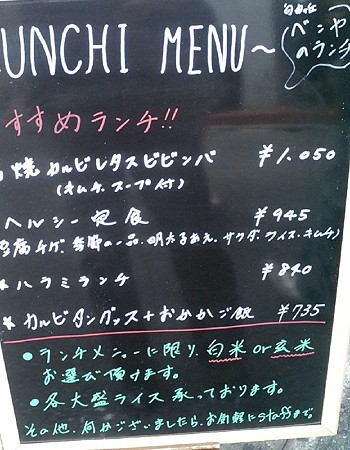 LUNCHI MENU～
ベンヤ
のランチ
すすめランチ!!
焼カルビレタスビビンバ ¥1.050
(キムチ、スープ付)
ヘルシー定食 ¥945
豆腐チゲ、季節の一品、明太子あえ、サラダ、ライス、キムチ)
* ハラミランチ ¥840
* カルビタンクッス+おかかご飯 ¥735
・ランチメニューに限り、白米or玄米
お選び頂けます。
・各大盛ライス承っております。
その他、何かございましたら、お気軽にstaffまで